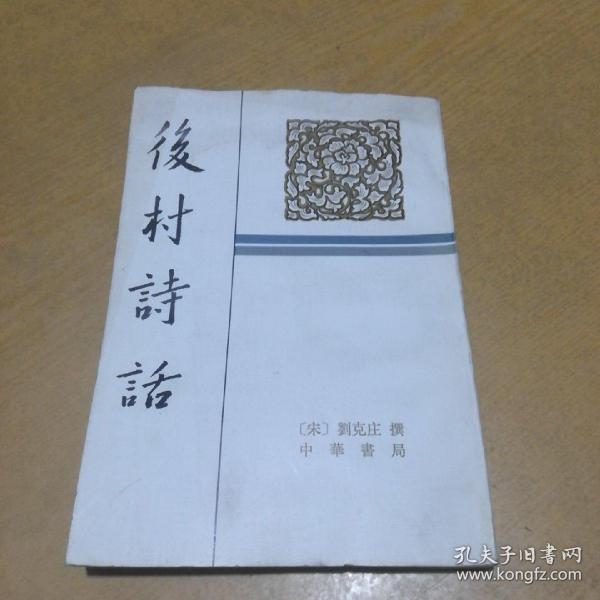 後村詩話
〔宋〕劉克庄 撰
中華書局
孔夫子旧书网
www.kongfz.com